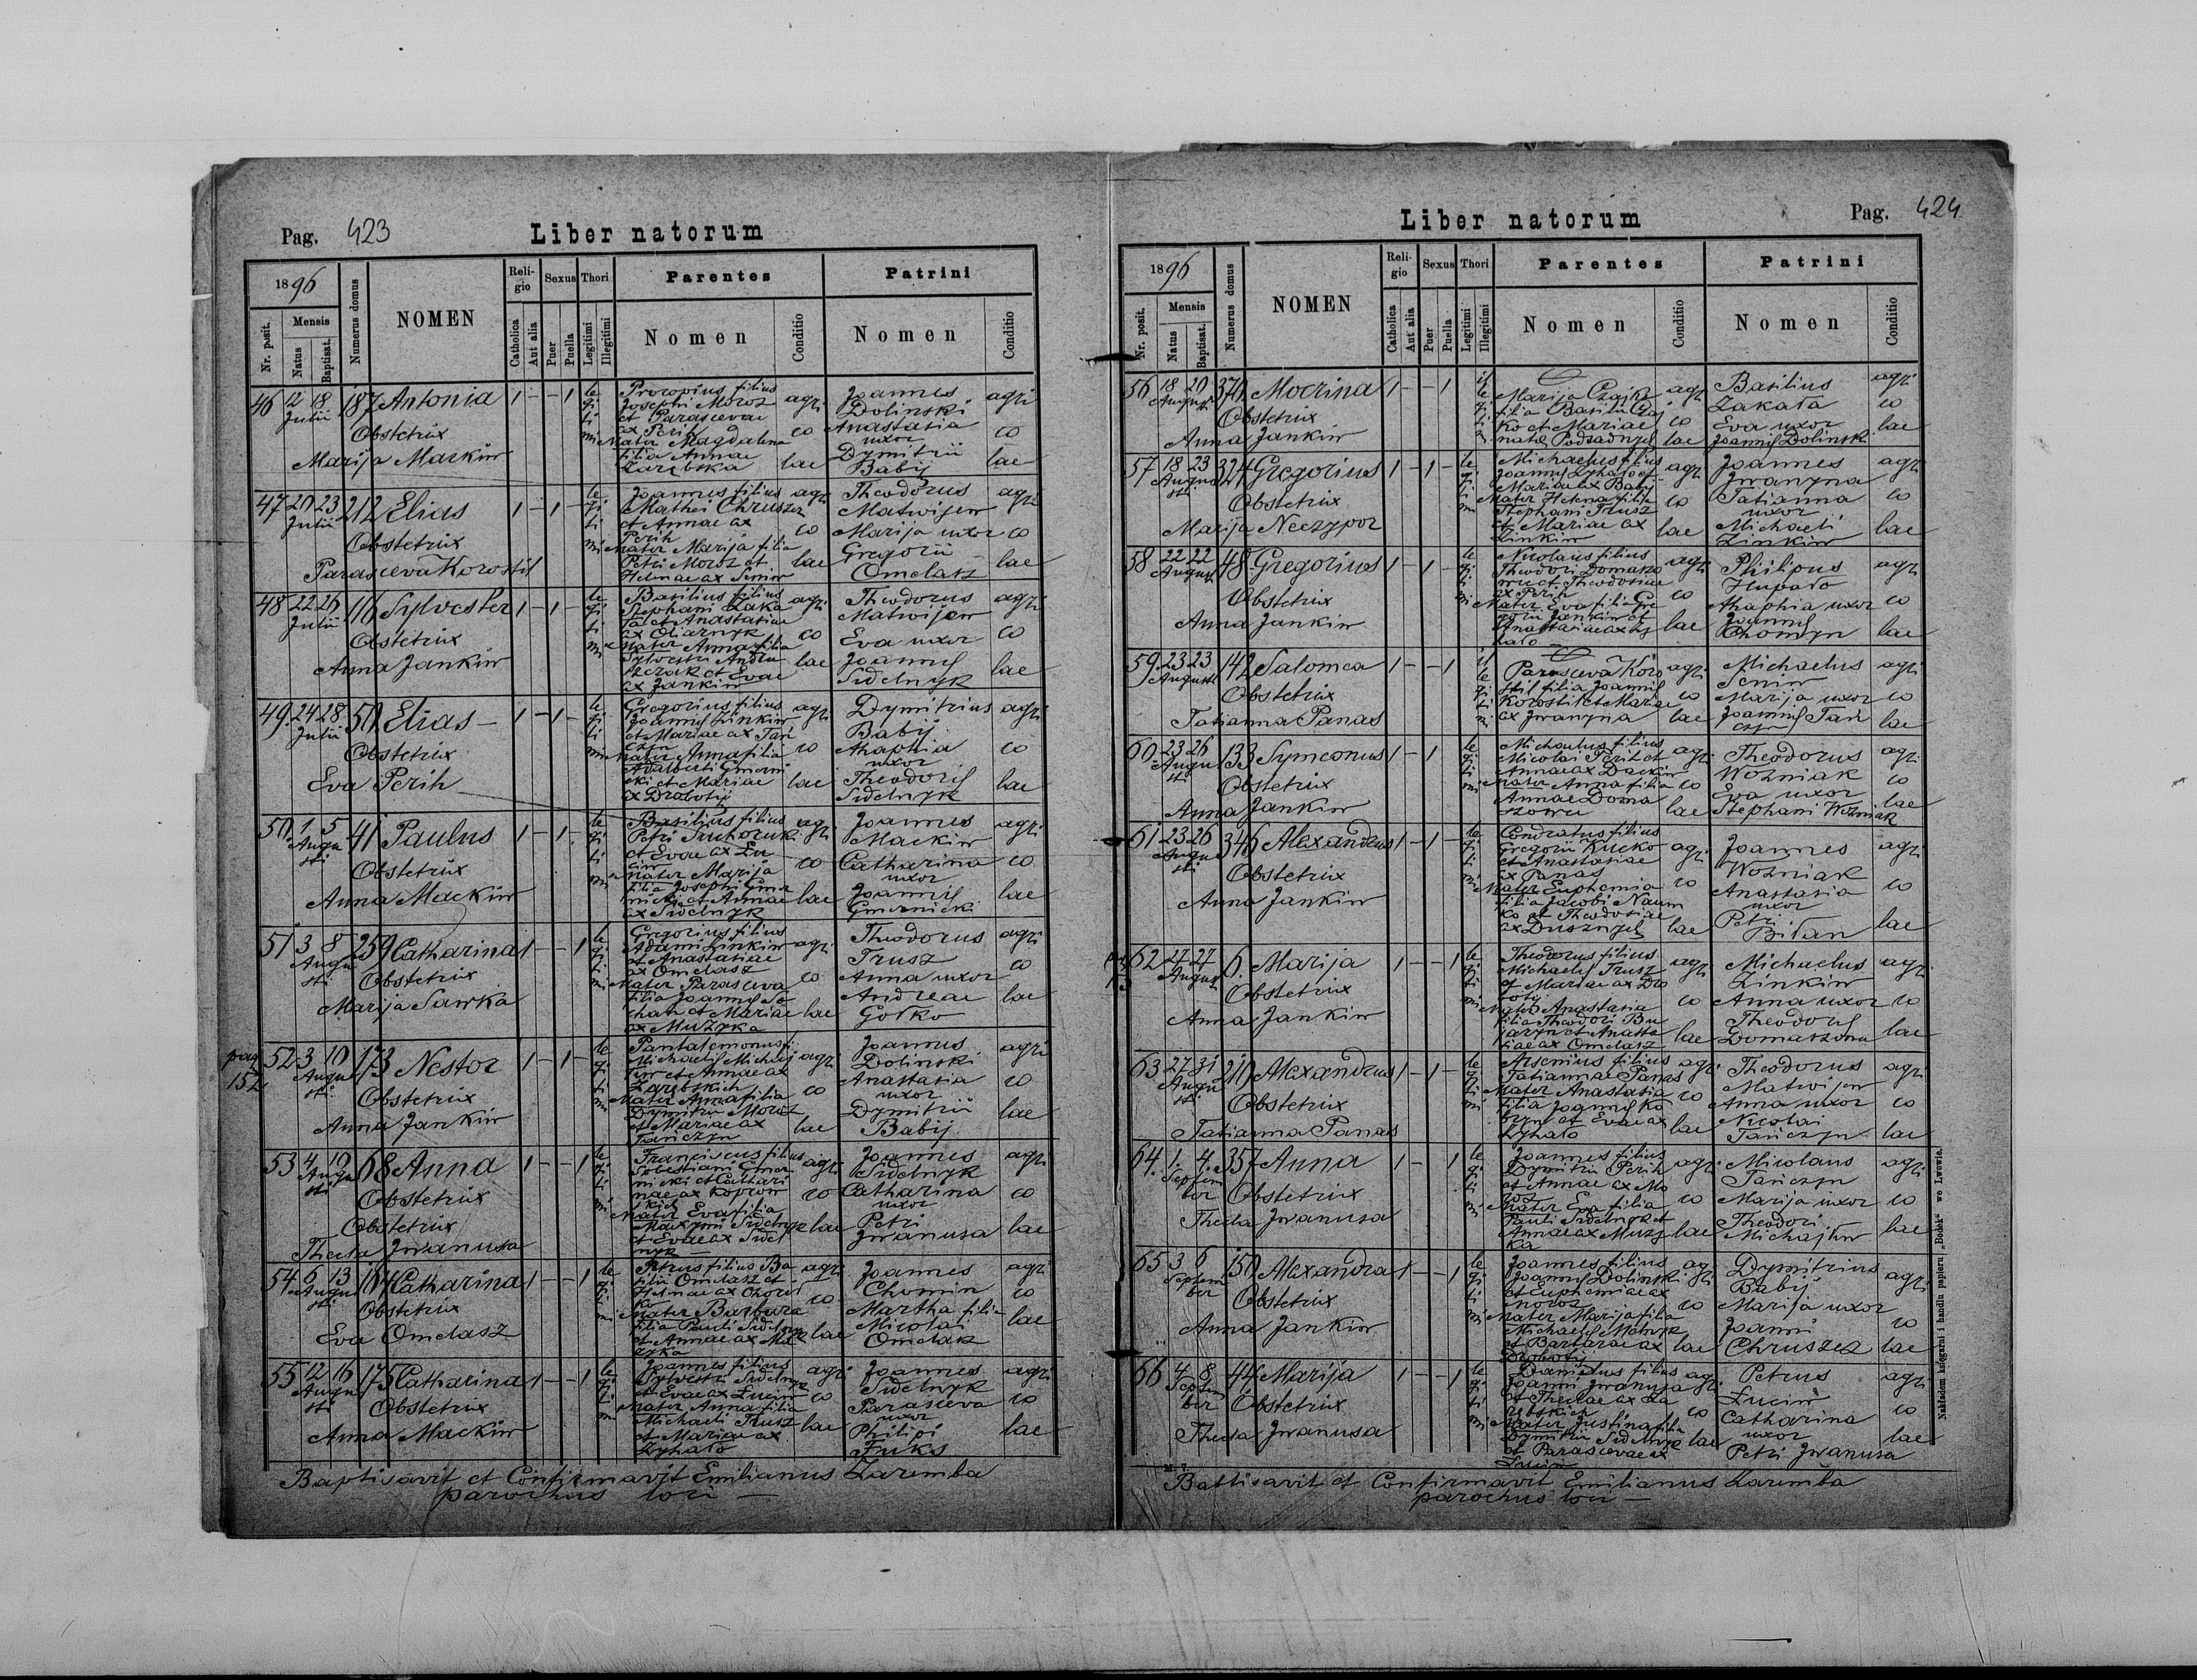 Pag. 423
Liber natorum
1896
Nr. posit.
Mensis
Natus
Baptisat.
Numerus domus
NOMEN
Religio
Catholica
Aut alia
Sexus
Puer
Puella
Thori
Legitimi
Illegitimi
Parentes
Nomen
Conditio
Patrini
Nomen
Conditio
46 12 18 187 Antonia 1 - - 1
Julii
Obstetrix
Marija Mackiw
legitimi
Procopius filius
Josephi Moroz
et Parascevae
ex Perih
Mater Magdalena
filia Annae
Zarebska
agricolae
Joannes
Dolinski
Anastasia
uxor
Dymitrii
Babij
agricolae
47 20 23 212 Elias 1 - 1 -
Julii
Obstetrix
Parasceva Korostil
legitimi
Joannes filius
Mathei Chruszcz
et Annae ex
Perih
Mater Marija filia
Petri Moroz et
Helenae ex Seniw
agricolae
Theodorus
Matwijew
Marija uxor
Gregorii
Omelasz
agricolae
48 22 26 116 Sylvester 1 - 1 -
Julii
Obstetrix
Anna Jankiw
legitimi
Basilius filius
Stephani Zaka
ła et Anastasiae
ex Oliarnyk
Mater Anna filia
Sylvestri Andru
szczak et Evae
ex Jankiw
agricolae
Theodorus
Matwijew
Eva uxor
Joannis
Sidelnyk
agricolae
49 24 28 50 Elias 1 - 1 -
Julii
Obstetrix
Eva Perih
legitimi
Gregorius filius
Joannis Zinkiw
et Mariae ex Tań
czyn
Mater Anna filia
Adalberti Gmerni
cki et Mariae
ex Drobotij
agricolae
Dymitrius
Babij
Ahaphia
uxor
Theodoris
Sidelnyk
agricolae
50 1 5 41 Paulus 1 - 1 -
Augusti
Obstetrix
Anna Mackiw
legitimi
Basilius filius
Petri Suchoruk
et Evae ex Lu
ciw
Mater Marija
filia Josephi Gmer
nicki et Annae
ex Sidelnyk
agricolae
Joannes
Mackiw
Catharina
uxor
Joannis
Gmernicki
agricolae
51 3 8 259 Catharina 1 - - 1
Augusti
Obstetrix
Marija Sawka
legitimi
Gregorius filius
Adami Zinkiw
et Anastasiae
ex Omelasz
Mater Parasceva
filia Joannis
et Mariae
ex Muzyka
agricolae
Theodorus
Trusz
Anna uxor
Andreae
Gorko
agricolae
pag 152
52 3 10 173 Nestor 1 - 1 -
Augusti
Obstetrix
Anna Jankiw
legitimi
Pantalemonus fi.
Michaelis Michaj
liw et Annae ex
Zarebskich
Mater Anna filia
Dymitrii Moroz
et Mariae ex
Tańczyn
agricolae
Joannes
Dolinski
Anastasia
uxor
Dymitrii
Babij
agricolae
53 4 10 68 Anna 1 - - 1
Augusti
Obstetrix
Obstetrix
Thecla Jwanusa
legitimi
Franciscus filius
Sobestiani Gmer
nicki et Cathari
nae ex
Mater Eva filia
Maxymi Sidelnyk
et Evae ex Sidel
nyk
agricolae
Joannes
Sidelnyk
Catharina
uxor
Petri
Jwanusa
agricolae
54 6 13 164 Catharina 1 - - 1
Augusti
Obstetrix
Eva Omelasz
legitimi
Petrus filius Ba
silii Omelasz et
Helenae ex
Mater Barbara
filia Pauli Sidelnyk
et Annae ex Mu
zyka
agricolae
Joannes
Chomin
Martha filia
Nicolai
Omelasz
agricolae
55 12 16 175 Catharina 1 - - 1
Augusti
Obstetrix
Anna Mackiw
legitimi
Joannes filius
Sylvestri Sidelnyk
et Evae ex Luciw
Mater Anna filia
Michaeli Trusz
et Mariae ex
Zyhało
agricolae
Joannes
Sidelnyk
Parasceva
uxor
Philipi
Fuks
agricolae
Baptisavit et Confirmavit Emilianus Zaremba
parochus loci
Liber natorum
Pag. 424
1896
Nr. posit.
Mensis
Natus
Baptisat.
Numerus domus
NOMEN
Religio
Catholica
Aut alia
Sexus
Puer
Puella
Thori
Legitimi
Illegitimi
Parentes
Nomen
Conditio
Patrini
Nomen
Conditio
56 18 20 370 Mocrina 1 - - 1
Augusti
Obstetrix
Anna Jankiw
illegitimi
Marija Czajko
filia Basilii Czaj
ko et Mariae
natae Podsadnyk
agricolae
Basilius
Zakała
Eva uxor
Joannis Dolinski
agricolae
57 18 23 324 Gregorius 1 - 1 -
Augusti
Obstetrix
Marija Neczypor
legitimi
Michaelus filius
Joannis Zyhało et
Mariae ex Babij
Mater Helena filia
Stephani Trusz
et Mariae ex
Zinkiw
agricolae
Joannes
Jwanyna
Tatianna
uxor
Michaeli
Zinkiw
agricolae
58 22 22 48 Gregorius 1 - 1 -
Augusti
Obstetrix
Anna Jankiw
legitimi
Nicolaus filius
Theodori Domaszo
wu et Theodosiae
ex Perih
Mater Eva filia Gre
gorii Jankiw et
Anastasiae ex Zy
hało
agricolae
Philipus
Hupało
Ahaphia uxor
Joannis
Chomyn
agricolae
59 23 23 142 Salomea 1 - - 1
Augusti
Obstetrix
Tatianna Panas
illegitimi
Parasceva Koro
stil filia Joannis
Korostil et Mariae
ex Jwanyna
agricolae
Michaelus
Seniw
Marija uxor
Joannis Tań
czyn
agricolae
60 23 26 133 Symeonus 1 - 1
Augusti
Obstetrix
Anna Jankiw
legitimi
Michaelus filius
Nicolai Perih et
Annae ex Dackiw
Mater Anna filia
Annae Doma
szowu
agricolae
Theodorus
Wozniak
Eva uxor
Stephani Wozniak
agricolae
61 23 26 346 Alexandrus 1 - 1 -
Augusti
Obstetrix
Anna Jankiw
legitimi
Condratus filius
Gregorii Kucko
et Anastasiae
ex Panas
Mater Euphemia
filia Jacobi Naum
ko et Theodosiae
ex Dusznyk
agricolae
Joannes
Wozniak
Anastasia
uxor
Petri
Bilan
agricolae
62 27 27 6. Marija 1 - - 1
Augusti
Obstetrix
Anna Jankiw
legitimi
Theodorus filius
Michaelis Trusz
et Mariae ex Dro
botij
Mater Anastasia
filia Theodori
et Anasta
siae ex Omelasz
agricolae
Michaelus
Zinkiw
Anna uxor
Theodoris
Domaszowu
agricolae
63 27 31 210 Alexandrus 1 - 1 -
Augusti
Obstetrix
Tatianna Panas
legitimi
Arsenius filius
Tatiannae Panas
Mater Anastasia
filia Joannis Ko
bryn et Evae ex
Zyhało
agricolae
Theodorus
Matwijew
Anna uxor
Nicolai
Tańczyn
agricolae
64. 1. 4. 357 Anna 1 - 1
September
Obstetrix
Thecla Jwanusa
legitimi
Joannes filius
Dymitrii Perih
et Annae ex Mo
roz
Mater Eva filia
Pauli Sidelnyk et
Annae ex Muzy
ka
agricolae
Nicolaus
Tańczyn
Marija uxor
Theodori
Michajliw
agricolae
65 3 6 150 Alexandra 1 - - 1
September
Obstetrix
Anna Jankiw
legitimi
Joannes filius
Joannis Dolinski
et Euphemiae ex
Moroz
Mater Marija filia
Michaelis Melnyk
et Barbarae ex
Drobotij
agricolae
Dymitrius
Babij
Marija uxor
Joanni
Chruszcz
agricolae
66 4 8 44 Marija 1 - - 1
September
Obstetrix
Thecla Jwanusa
legitimi
Danielus filius
Joanni Jwanusa
et Theclae ex Za
rebskich
Mater Justina filia
Dymitrii Sidelnyk
et Parascevae ex
Luciw
agricolae
Petrus
Luciw
Catharina
uxor
Petri Jwanusa
agricolae
Battisavit et Confirmavit Emilianus Zaremba
parochus loci
Nakładem księgarni i handlu papieru „Bodek" we Lwowie.